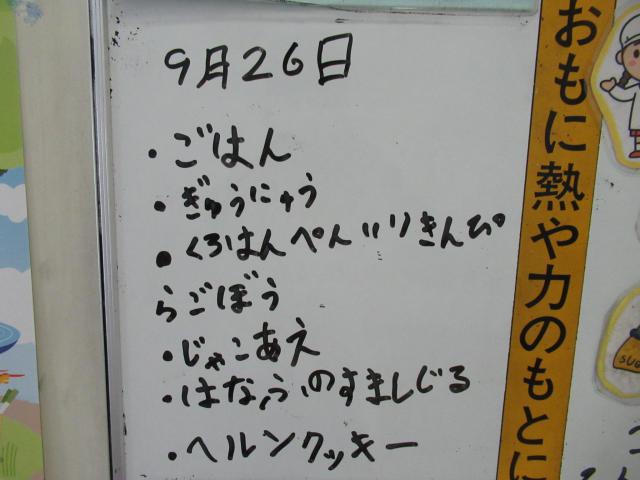 9月26日
・ごはん
・ぎゅうにゅう
・くろはんぺんいりきんぴ
らごぼう
・じゃこあえ
・はなふのすましじる
・ヘルンクッキー
おもに熱や力のもとに